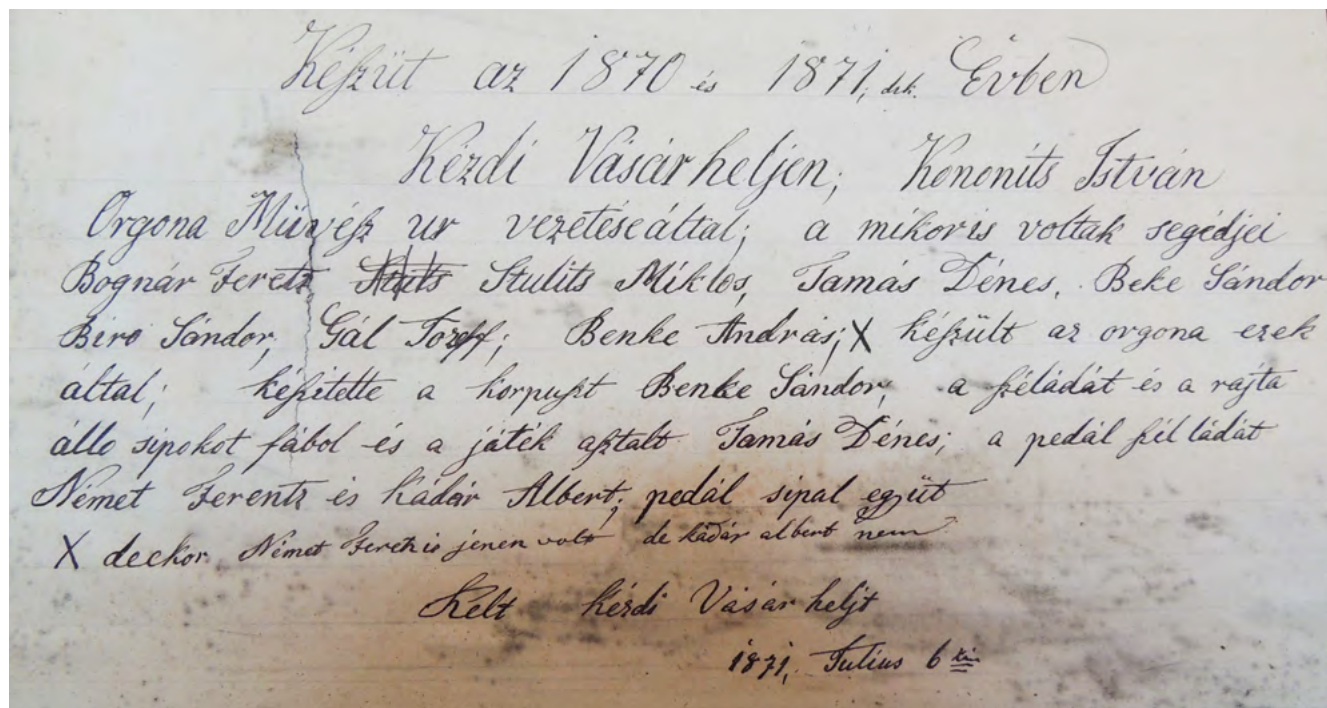 Készüt az 1870 és 1871, dik. Évben
Kézdi Vásárheljen; Kononits István
Orgona Müvész ur vezetéseáltal; a mikoris voltak segédjei
Bognár Feretz Stulits Miklos, Tamás Dénes, Beke Sándor
Biro Sándor, Gál Jozeff; Benke András; X készült az orgona ezek
által; készitette a korpuszt Benke Sándor, a széládát és a rajta
állo sipokot fábol és a játék asztalt Tamás Dénes; a pedál szél ládát
Német Ferentz és Kádár Albert; pedál sipal együt
X deckor Német Feretz is jenen volt de kádár albert nem
Kelt Kézdi Vásár heljt
1871, Julius 6 ki